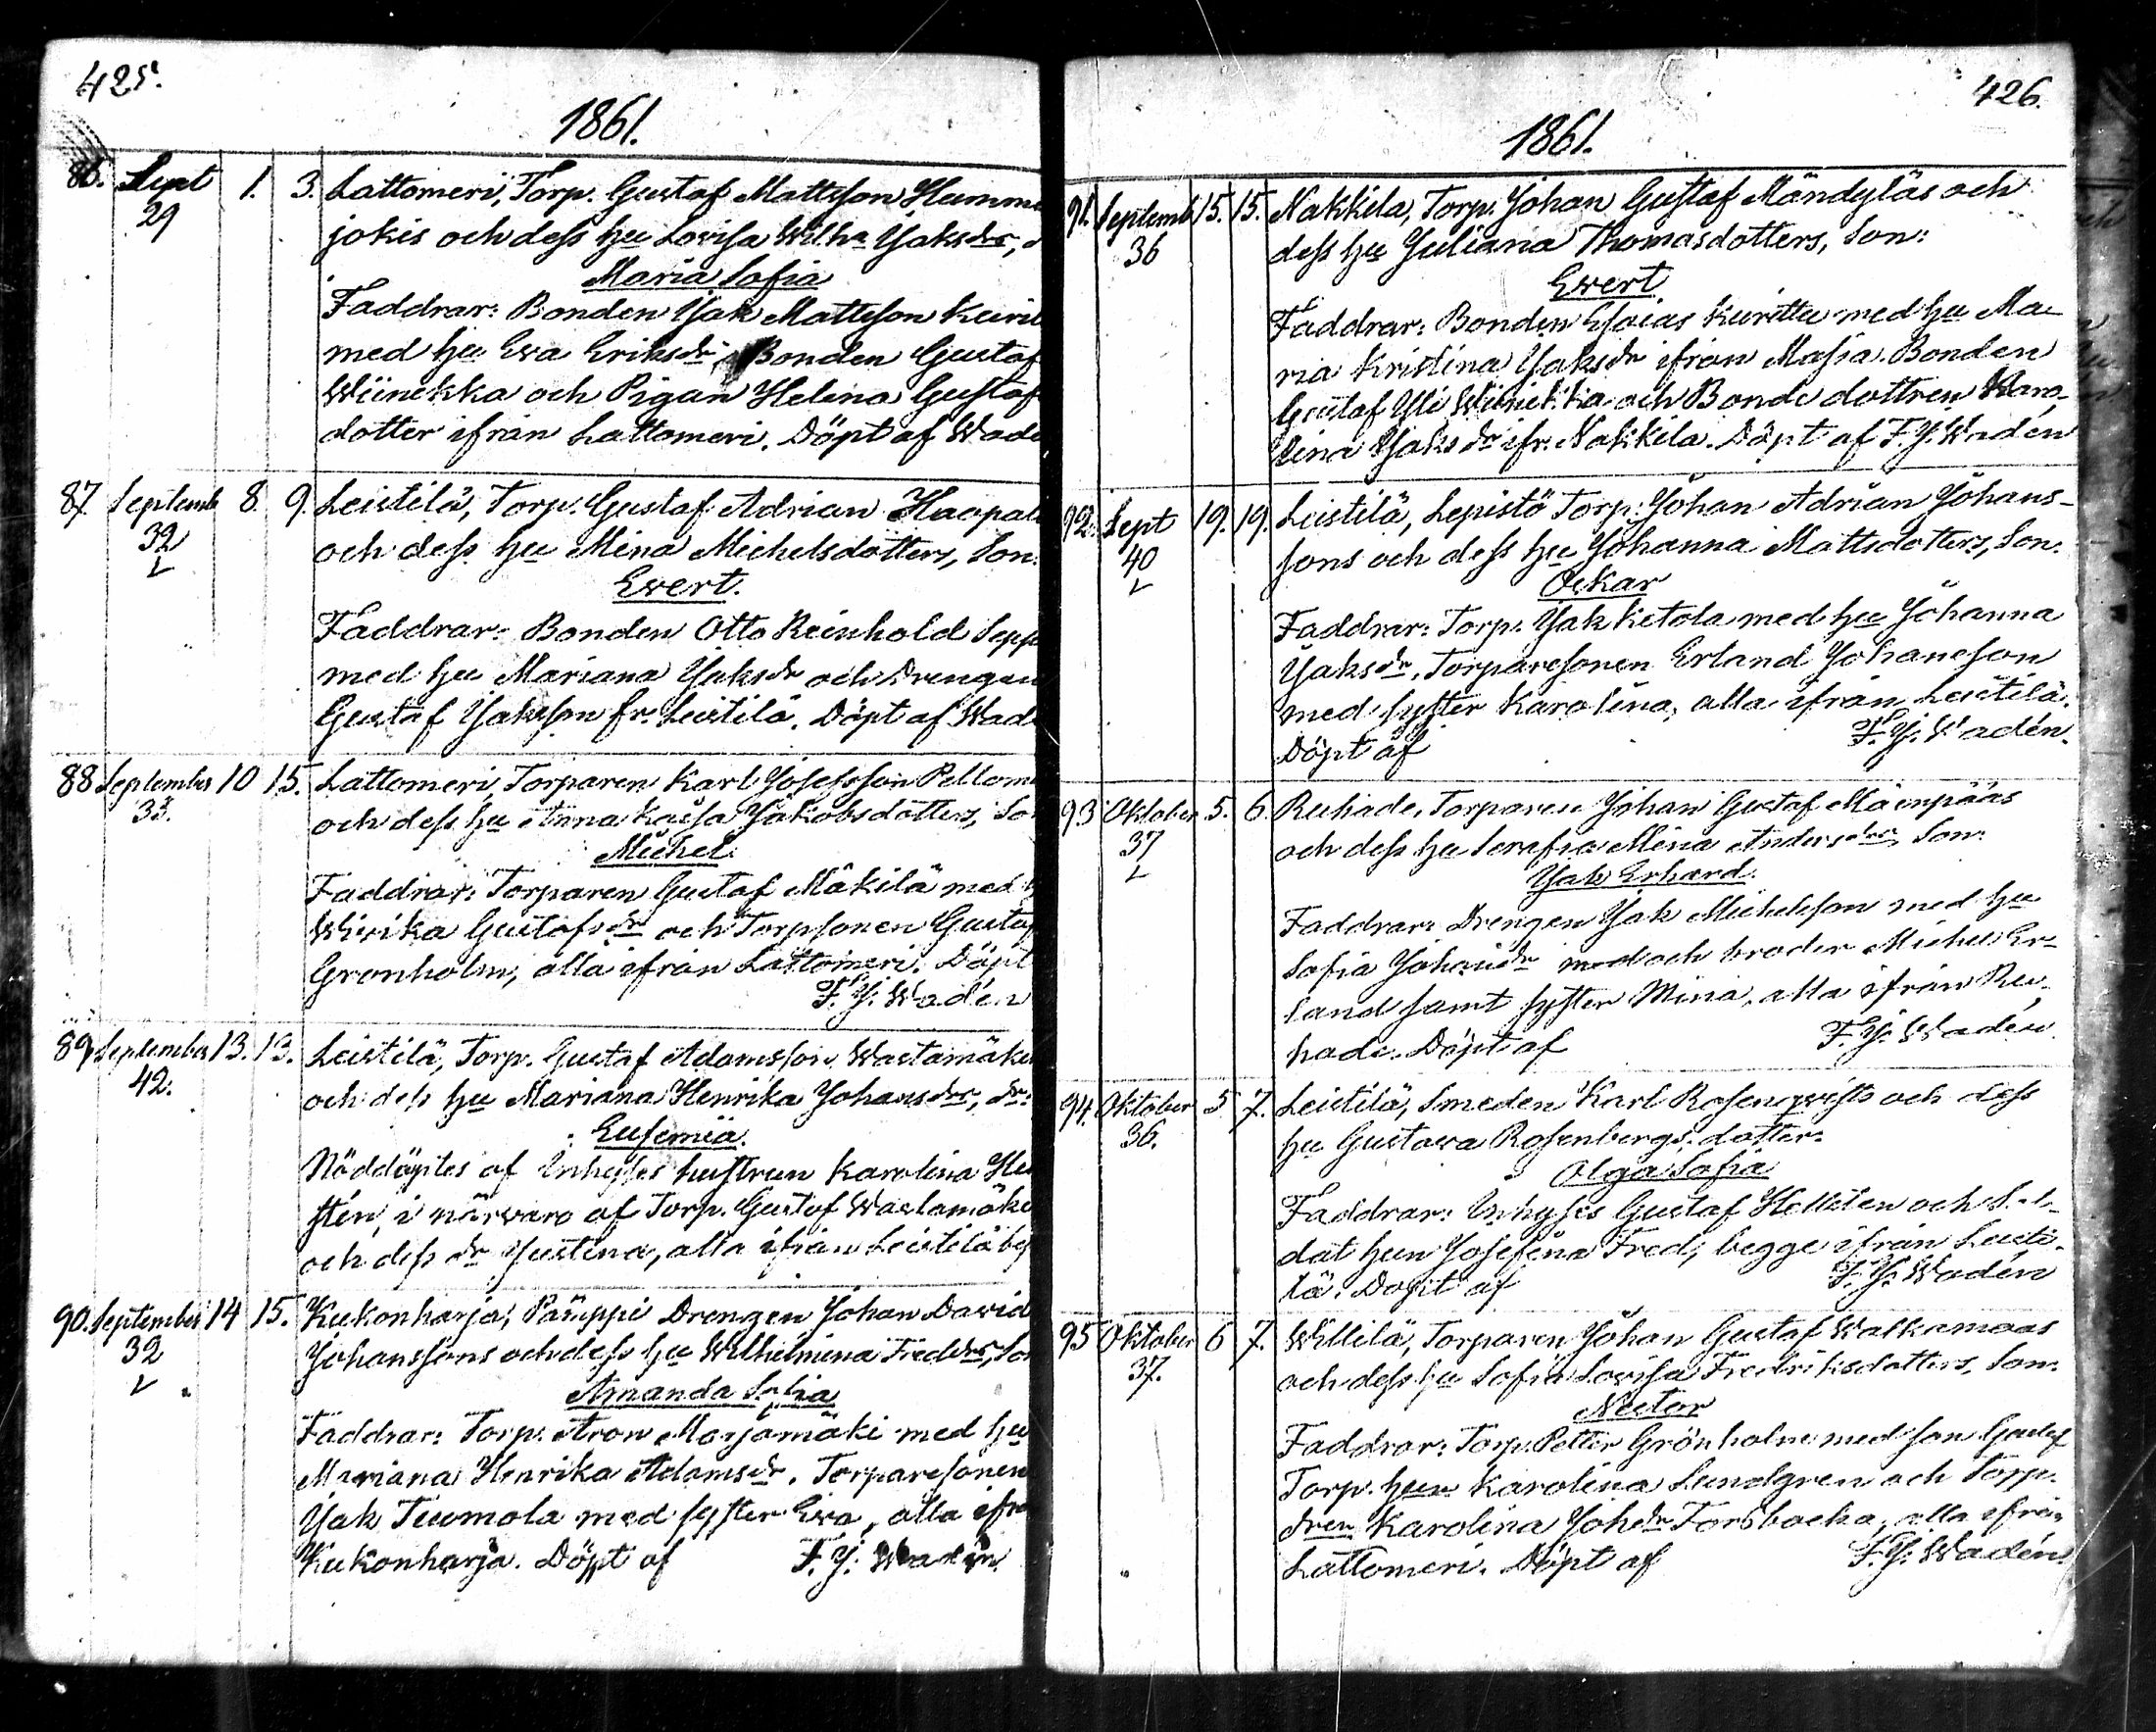 425.
1861.
86. Sept 1. 3. Lattomeri, Torp. Gustaf Mattsson Humme
29 jokis och dess hu Lovisa Wilh:a Jaksdr,
Maria Sofia
Faddrar: Bonden Jak Mattsson
med hu Eva Eriksdr, Bonden Gustaf
Wiinikka och Pigan Helena Gustaf
dotter ifrån Lattomeri. Döpt af Wade
87. Septemb 8 9. Leistilä, Torp. Gustaf Adrian Haapal
32 och dess hu Mina Michelsdotters, Son:
Evert.
Faddrar: Bonden Otto Reinhold Sepp
med hu Mariana Jaksdr och Drengen
Gustaf Jaksson fr. Leistilä. Döpt af Wad
88 September 10 15. Lattomeri, Torparen Karl Josefsson Peltom
33. och dess hu Anna Kaisa Jakobsdotters, So
Michel.
Faddrar: Torparen Gustaf Mäkilä med
Wirika Gustafsdr och Torpsonen Gustaf
Grönholm, alla ifrån Lattomeri. Döpt
F. J. Wadén
89 September 13. 13. Leistilä, Torp. Gustaf Adamsson Wastamäke
42. och dess hu Mariana Henrika Johansdrs, dr:
Eufemia.
Nöddöptes af Inhyses hustrun Karolina He
stén, i närvaro af Torp. Gustaf Wastamäke
och dess dr Justina, alla ifrån Leistilä by
90. September 14 15. Kukonharja, Pamppi Drengen Johan David
32 Johanssons och dess hu Wilhelmina Freddrs, So
Amanda Sofia
Faddrar: Torp. Aron Marjamäki med hu
Mariana Henrika Adamsdr, Torparesonen
Jak Tuomola med syster Eva, alla ifrå
Kukonharja. Döpt af F. J. Wadén.
426.
1861.
91. Septemb 15. 15. Nakkila, Torp. Johan Gustaf Mändyläs och
36 dess hu Juliana Thomasdotters, Son:
Evert
Faddrar: Bonden Esaias Kurittu med hu Ma-
ria Kristina Jaksdr ifrån Masia. Bonden
Gustaf Yli Wiinikka och Bonde dottren Karo-
lina Jaksdr ifr. Nakkila. Döpt af F. J. Wadén
92. Sept 19. 19. Leistilä, Lepistö Torp: Johan Adrian Johans-
40 sons och dess hu Johanna Mattsdotters, Son:
Oskar
Faddrar: Torp. Jak Ketola med hu Johanna
Jaksdr. Torparesonen Erland Johansson
med syster Karolina, alla ifrån Leistilä.
Döpt af F. J. Wadén.
93 Oktober 5. 6. Ruhade, Torparen Johan Gustaf Mäenpääs
37 och dess hu Serafia Mina Andersdrs, Son:
Jak Erhard.
Faddrar: Drengen Jak Michelsson med hu
Sofia Johansdr med och broder Michel Er-
land samt syster Mina, alla ifrån Ru-
hade. Döpt af F. J. Wadén.
94. Oktober 5 7. Leistilä, Smeden Karl Rosenqvists och dess
36. hu Gustava Rosenbergs, dotter:
Olga Sofia
Faddrar: Inhyses Gustaf Hellsten och Sol-
dat hun Josefina Fred, begge ifrån Leisti-
lä. Döpt af F. J. Wadén
95 Oktober 6 7. Willilä, Torparen Johan Gustaf Walkamaas
37. och dess hu Sofia Lovisa Fredriksdotters, Son:
Nestor
Faddrar: Torp. Petter Grönholm med son Gustaf
Torp. hun Karolina Lundgren och Torp.
dren Karolina Johsdr Forsbacka, alla ifrån
Lattomeri. Döpt af F. J. Wadén